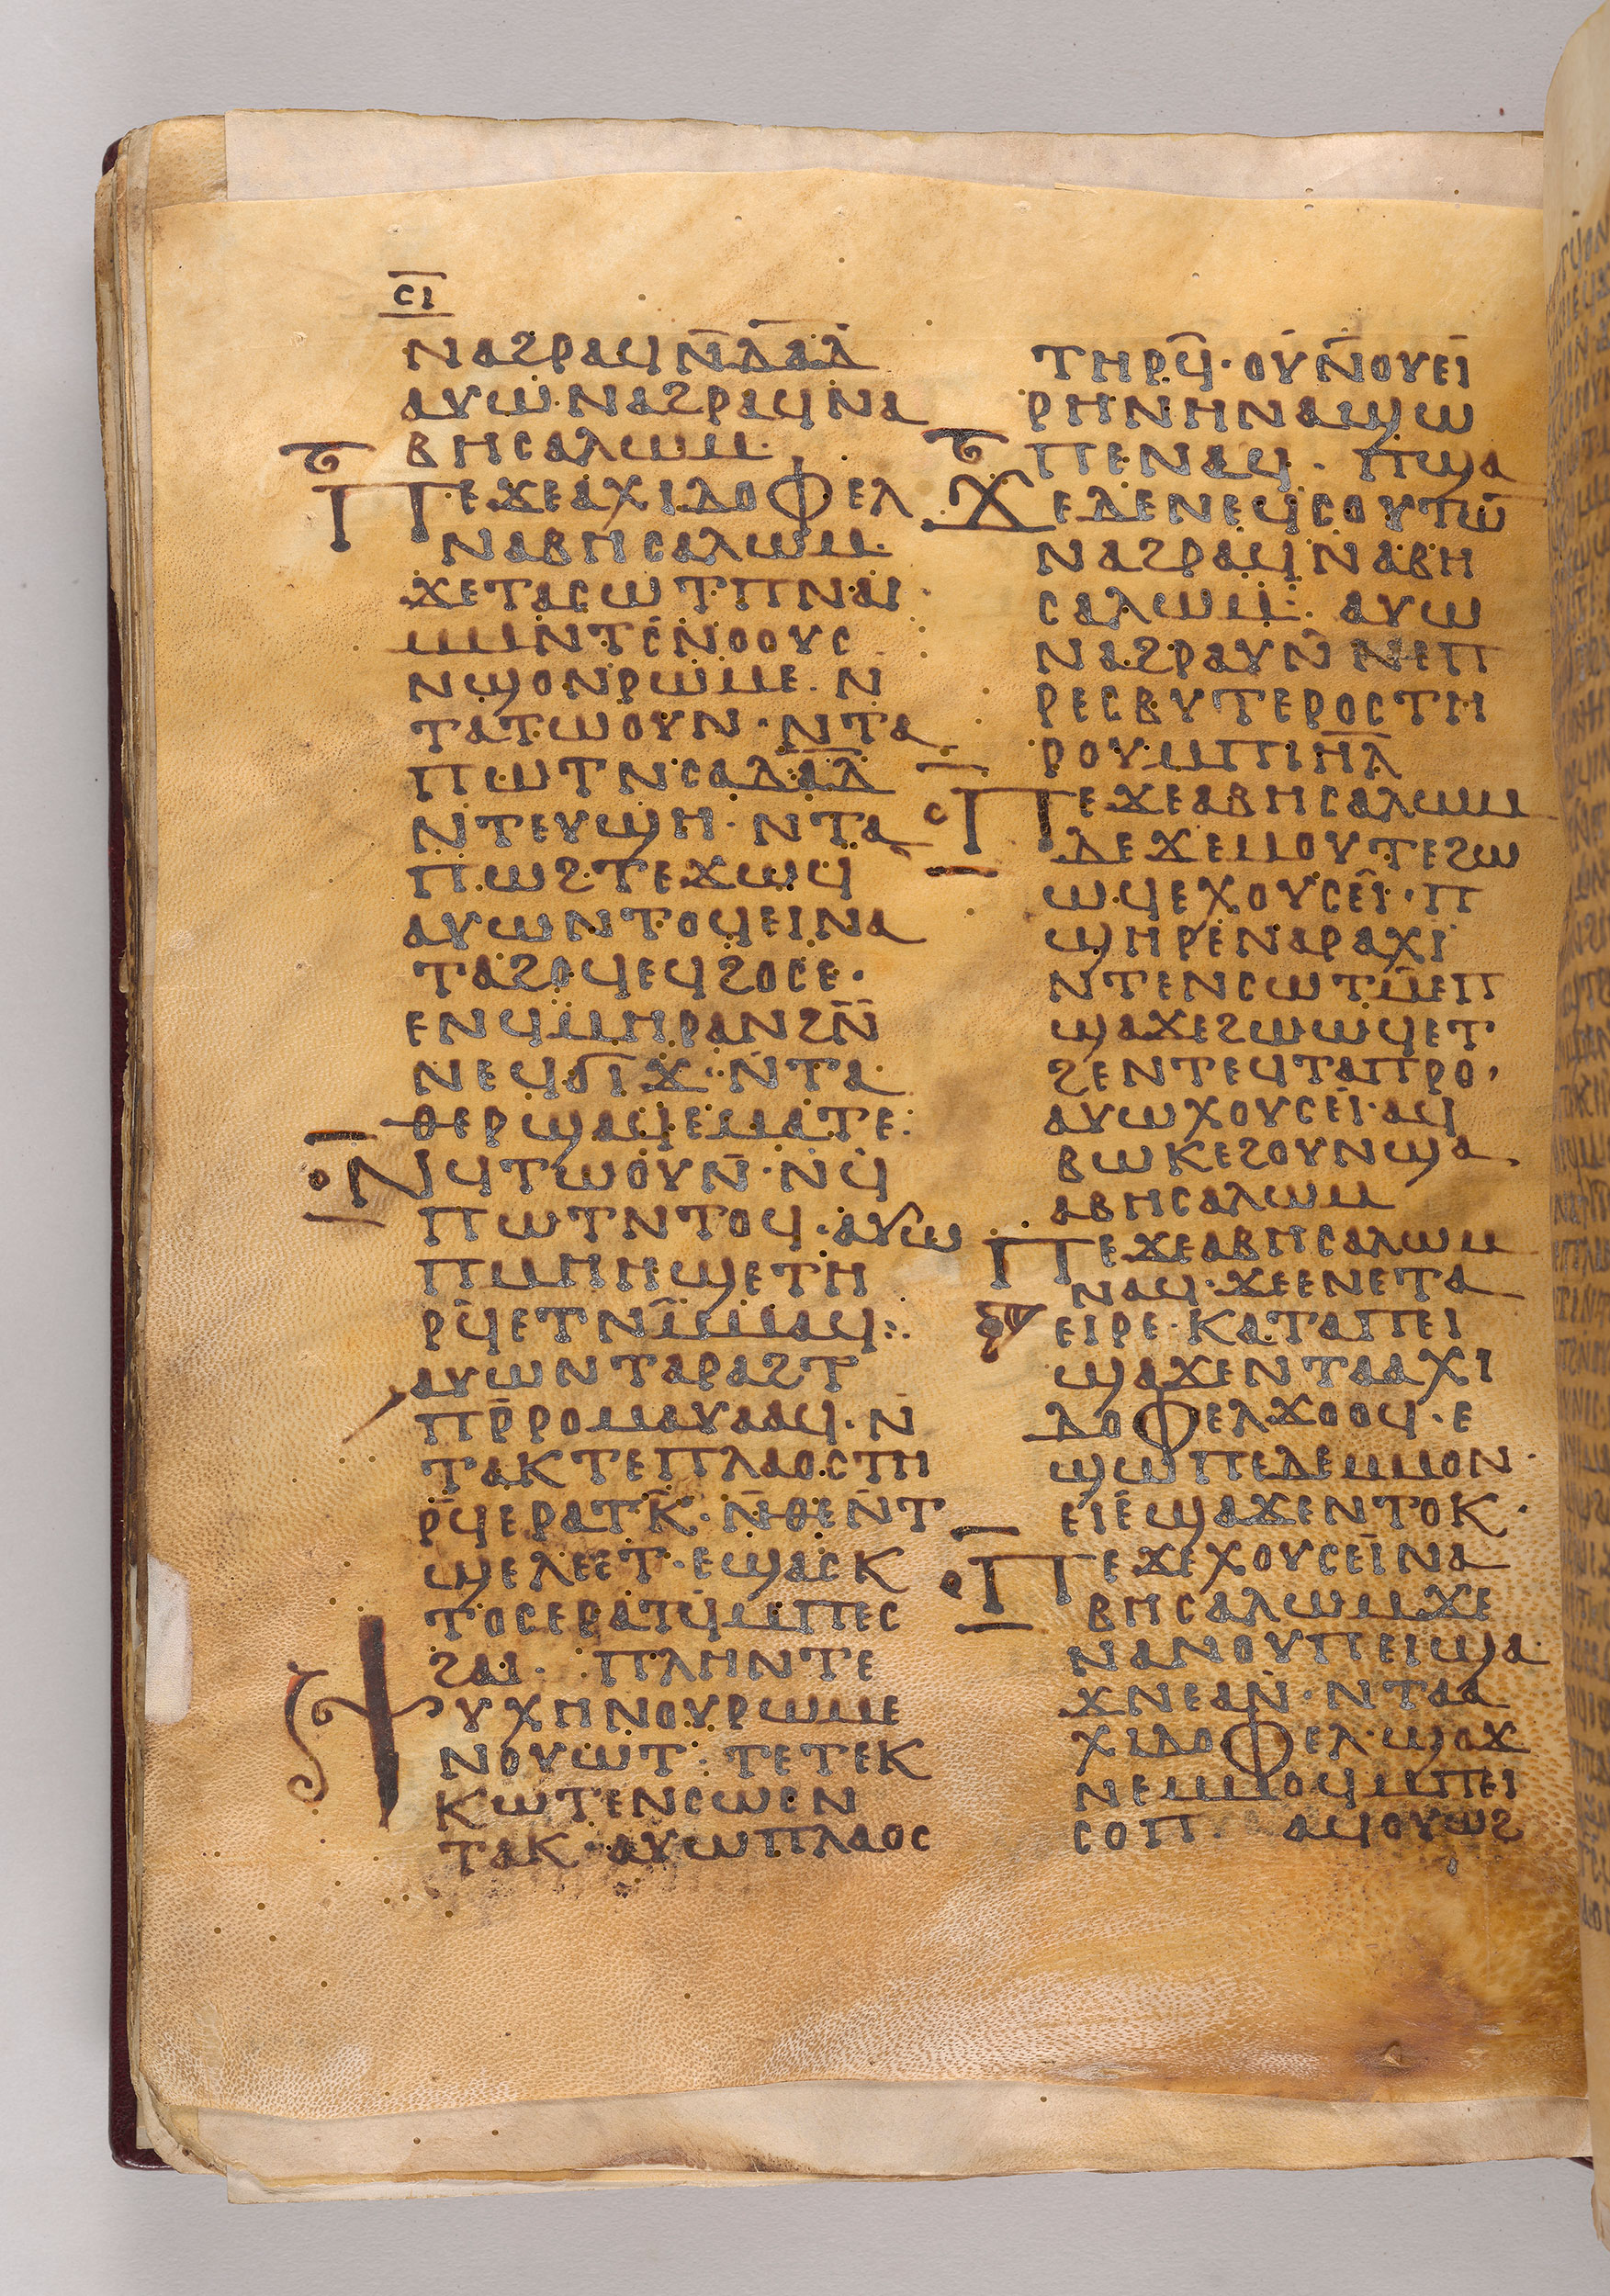 ⲥⲓ
ⲛⲁϩⲣⲁϥⲛ̄ⲇⲁ̅ⲇ
ⲁⲩⲱⲛⲁϩⲣⲁϥⲛⲁ
ⲃⲏⲥⲁⲗⲱⲙ·
ⲡⲉϫⲉⲁⲭⲓⲇⲟⲫⲉⲗ
ⲛⲁⲃⲏⲥⲁⲗⲱⲙ·
ϫⲉⲧⲁⲥⲱⲧⲡⲛⲁⲓ·
ⲙⲙⲛⲧⲥⲛⲟⲟⲩⲥ
ⲛϣⲟⲛⲣⲱⲙⲉ·ⲛ
ⲧⲁⲧⲱⲟⲩⲛ·ⲛⲧⲁ
ⲡⲱⲧⲛⲥⲁⲇⲁ̅ⲇ
ⲛⲧⲉⲩϣⲏ·ⲛⲧⲁ
ⲡⲱϩⲧⲉϫⲱϥ
ⲁⲩⲱⲛⲧⲟϥⲉⲓⲛⲁ
ⲧⲁϩⲟϥⲉϥϩⲟⲥⲉ·
ⲉⲛϥⲙⲏⲣⲁⲛϩⲛ̄
ⲛⲉϥϭⲓϫ·ⲛⲧⲁ
ⲑⲉⲣϣⲁϥⲉⲙⲁⲧⲉ·
ⲛϥⲧⲱⲟⲩⲛ·ⲛϥ
ⲡⲱⲧⲛⲧⲟϥ·ⲁⲩⲱ
ⲡⲙⲏⲏϣⲉⲧⲏ
ⲣϥⲉⲧⲛⲙ̄ⲙⲁϥ:·
ⲁⲩⲱⲛⲧⲁⲣⲁϩⲧ
ⲡⲣ̄ⲣⲟⲙⲁⲩⲁⲁϥ·ⲛ
ⲧⲁⲕⲧⲉⲡⲗⲁⲟⲥⲧⲏ
ⲣϥⲉⲣⲁⲧⲕ̄·ⲛ̄ⲑⲉⲛⲧ
ϣⲉⲗⲉⲉⲧ·ⲉϣⲁⲥⲕ
ⲧⲟⲥⲉⲣⲁⲧϥⲙⲡⲉⲥ
ϩⲁⲓ· ⲡⲗⲏⲛⲧⲉ
ⲯⲩⲭⲏⲛⲟⲩⲣⲱⲙⲉ
ⲛⲟⲩⲱⲧ·ⲧⲉⲧⲉⲕ
ⲕⲱⲧⲉⲛⲥⲱⲥⲛ
ⲧⲁⲕ·ⲁⲩⲱⲡⲗⲁⲟⲥ
ⲧⲏⲣϥ·ⲟⲩⲛ̄ⲟⲩⲉⲓ
ⲣⲏⲛⲏⲛⲁϣⲱ
ⲡⲉⲛⲁϥ· ⲡϣⲁ
ϫⲉⲇⲉⲛⲉϥⲥⲟⲩⲧⲱ̄
ⲛⲁϩⲣⲁϥⲛⲁⲃⲏ
ⲥⲁⲗⲱⲙ· ⲁⲩⲱ
ⲛⲁϩⲣⲁⲩⲛ̄ⲛⲉⲡ
ⲣⲉⲥⲃⲩⲧⲉⲣⲟⲥⲧⲏ
ⲣⲟⲩⲙⲡⲓⲏ̅ⲗ
ⲡⲉϫⲉⲁⲃⲏⲥⲁⲗⲱⲙ
ⲇⲉϫⲉⲙⲟⲩⲧⲉϩⲱ
ⲱϥⲉⲭⲟⲩⲥⲉⲓ̂·ⲡ
ϣⲏⲣⲉⲛⲁⲣⲁⲭⲓ
ⲛⲧⲉⲛⲥⲱⲧⲙ̄ⲉⲡ
ϣⲁϫⲉϩⲱⲱϥⲉⲧ
ϩⲉⲛⲧⲉϥⲧⲁⲡⲣⲟ·
ⲁⲩⲱⲭⲟⲩⲥⲉⲓ·ⲁϥ
ⲃⲱⲕⲉϩⲟⲩⲛϣⲁ
ⲁⲃⲏⲥⲁⲗⲱⲙ
ⲡⲉϫⲉⲁⲃⲏⲥⲁⲗⲱⲙ
ⲛⲁϥ·ϫⲉⲉⲛⲉⲧⲁ
ⲉⲓⲣⲉ·ⲕⲁⲧⲁⲡⲉⲓ
ϣⲁϫⲉⲛⲧⲁⲁⲭⲓ
ⲇⲟⲫⲉⲗϫⲟⲟϥ·ⲉ
ϣⲱⲡⲉⲇⲉⲙⲙⲟⲛ·
ⲉⲓⲉϣⲁϫⲉⲛⲧⲟⲕ·
ⲡⲉϫⲉⲭⲟⲩⲥⲉⲓⲛⲁ
ⲃⲏⲥⲁⲗⲱⲙϫⲉ
ⲛⲁⲛⲟⲩⲡⲉⲓϣⲁ
ϫⲛⲉⲁⲛ·ⲛⲧⲁⲁ
ⲭⲓⲇⲟⲫⲉⲗ·ϣⲟϫ
ⲛⲉⲙⲙⲟϥⲙⲡⲉⲓ
ⲥⲟⲡ· ⲁϥⲟⲩⲱϩ